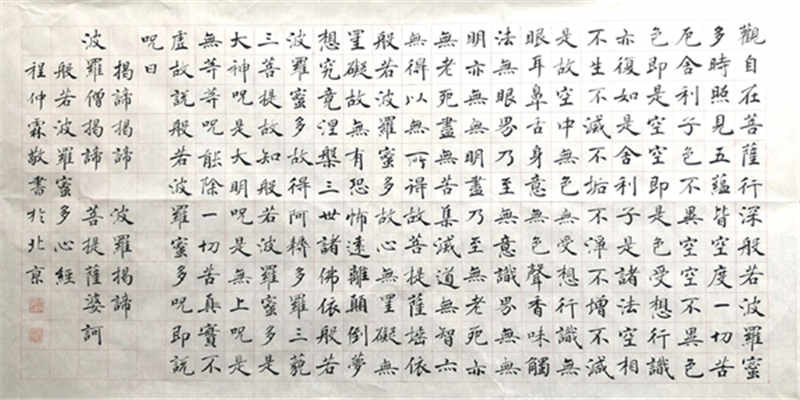 觀自在菩薩行深般若波羅蜜
多時照見五蘊皆空度一切苦
厄舍利子色不異空空不異色
色即是空空即是色受想行識
亦復如是舍利子是諸法空相
不生不滅不垢不淨不增不減
是故空中無色無受想行識無
眼耳鼻舌身意無色聲香味觸
法無眼界乃至無意識界無無
明亦無無明盡乃至無老死亦
無老死盡無苦集滅道無智亦
無得以無所得故菩提薩埵依
般若波羅蜜多故心無罣礙無
罣礙故無有恐怖遠離顛倒夢
想究竟涅槃三世諸佛依般若
波羅蜜多故得阿耨多羅三藐
三菩提故知般若波羅蜜多是
大神呪是大明呪是無上呪是
無等等呪能除一切苦真實不
虛故說般若波羅蜜多呪即說
呪曰
揭諦揭諦 波羅揭諦
波羅僧揭諦 菩提薩婆訶
般若波羅蜜多心經
程仲霖敬書於北京